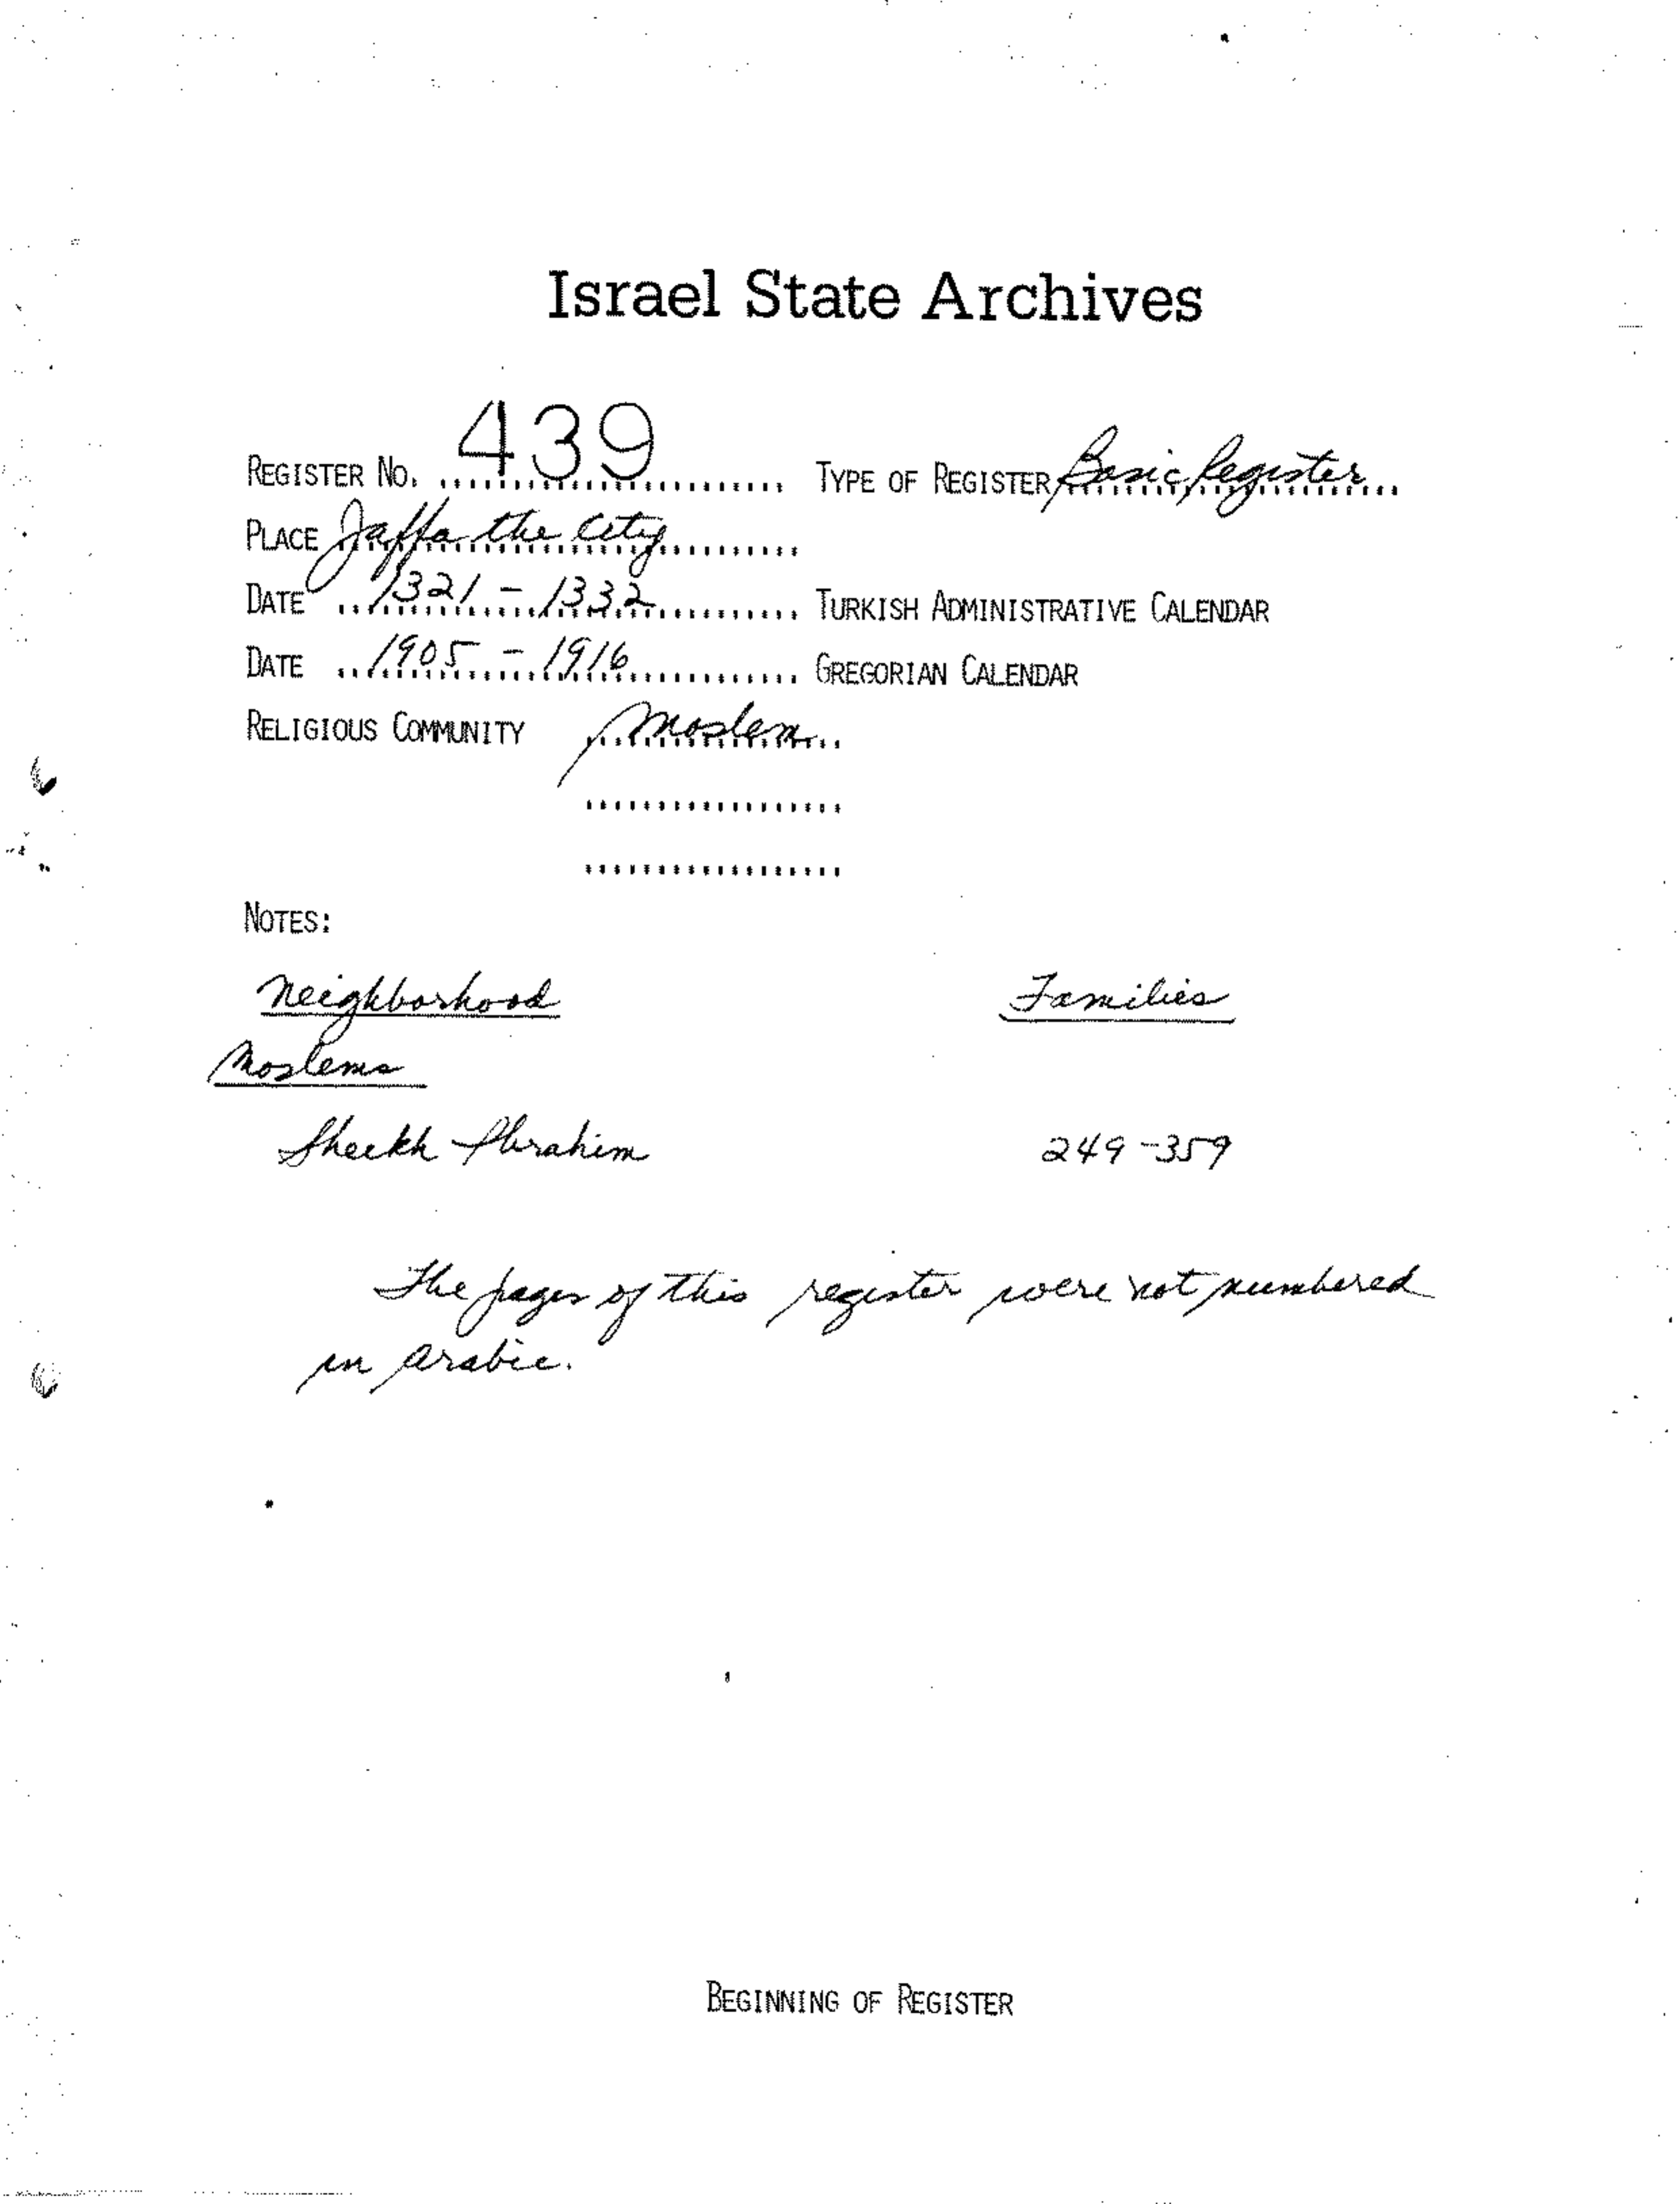 Israel State Archives
REGISTER NO. 439 TYPE OF REGISTER Basic Register
PLACE Jaffa the City
DATE 1321 - 1332 TURKISH ADMINISTRATIVE CALENDAR
DATE 1905 - 1916 GREGORIAN CALENDAR
RELIGIOUS COMMUNITY Moslem
NOTES:
Neighborhood Families
Moslems
Sheikh Ibrahim 249-359
The pages of this register were not numbered
in Arabic.
BEGINNING OF REGISTER